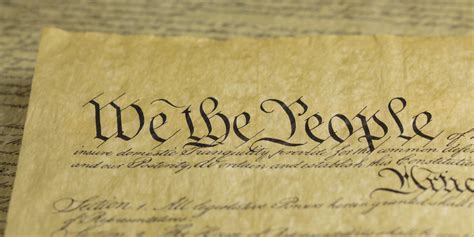 We the People
insure domestic Tranquility, provide for the common defe
and our Posterity, do ordain and establish this Constitution
Artic
Section 1. All legislative Powers herein granted shall
of Representatives